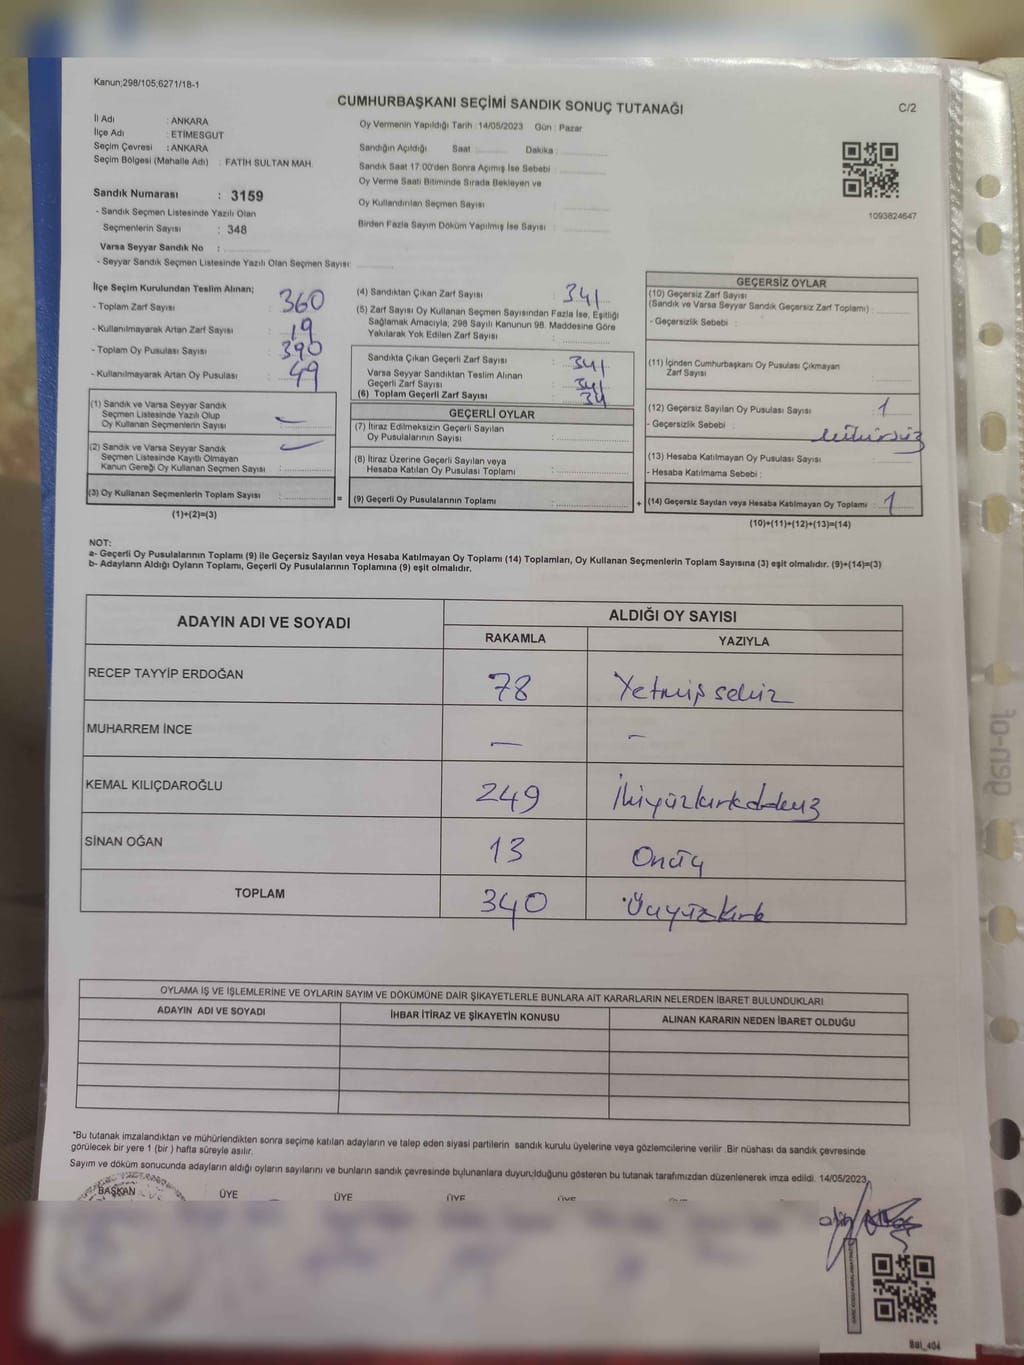 Kanun;298/105;6271/18-1
CUMHURBAŞKANI SEÇİMİ SANDIK SONUÇ TUTANAĞI
C/2
İl Adı : ANKARA
İlçe Adı : ETİMESGUT
Seçim Çevresi : ANKARA
Seçim Bölgesi (Mahalle Adı) : FATİH SULTAN MAH.
Sandık Numarası : 3159
- Sandık Seçmen Listesinde Yazılı Olan
Seçmenlerin Sayısı : 348
Varsa Seyyar Sandık No :
- Seyyar Sandık Seçmen Listesinde Yazılı Olan Seçmen Sayısı:
Oy Vermenin Yapıldığı Tarih : 14/05/2023 Gün : Pazar
Sandığın Açıldığı Saat : Dakika :
Sandık Saat 17:00'den Sonra Açımış İse Sebebi :
Oy Verme Saati Bitiminde Sırada Bekleyen ve
Oy Kullandırılan Seçmen Sayısı :
Birden Fazla Sayım Döküm Yapılmış İse Sayısı :
1093824647
İlçe Seçim Kurulundan Teslim Alınan;
- Toplam Zarf Sayısı : 360
- Kullanılmayarak Artan Zarf Sayısı : 19
- Toplam Oy Pusulası Sayısı : 390
- Kullanılmayarak Artan Oy Pusulası : 49
(1) Sandık ve Varsa Seyyar Sandık
Seçmen Listesinde Yazılı Olup
Oy Kullanan Seçmenlerin Sayısı : —
(2) Sandık ve Varsa Seyyar Sandık
Seçmen Listesinde Kayıtlı Olmayan
Kanun Gereği Oy Kullanan Seçmen Sayısı : —
(3) Oy Kullanan Seçmenlerin Toplam Sayısı :
(1)+(2)=(3)
=
(4) Sandıktan Çıkan Zarf Sayısı : 341
(5) Zarf Sayısı Oy Kullanan Seçmen Sayısından Fazla İse, Eşitliği
Sağlamak Amacıyla; 298 Sayılı Kanunun 98. Maddesine Göre
Yakılarak Yok Edilen Zarf Sayısı :
Sandıkta Çıkan Geçerli Zarf Sayısı : 341
Varsa Seyyar Sandıktan Teslim Alınan
Geçerli Zarf Sayısı : 341
(6) Toplam Geçerli Zarf Sayısı : 34
GEÇERLİ OYLAR
(7) İtiraz Edilmeksizin Geçerli Sayılan
Oy Pusulalarının Sayısı :
(8) İtiraz Üzerine Geçerli Sayılan veya
Hesaba Katılan Oy Pusulası Toplamı :
(9) Geçerli Oy Pusulalarının Toplamı :
+
GEÇERSİZ OYLAR
(10) Geçersiz Zarf Sayısı
(Sandık ve Varsa Seyyar Sandık Geçersiz Zarf Toplamı) :
- Geçersizlik Sebebi :
(11) İçinden Cumhurbaşkanı Oy Pusulası Çıkmayan
Zarf Sayısı :
(12) Geçersiz Sayılan Oy Pusulası Sayısı : 1
- Geçersizlik Sebebi :
(13) Hesaba Katılmayan Oy Pusulası Sayısı :
- Hesaba Katılmama Sebebi :
(14) Geçersiz Sayılan veya Hesaba Katılmayan Oy Toplamı : 1
(10)+(11)+(12)+(13)=(14)
NOT:
a- Geçerli Oy Pusulalarının Toplamı (9) ile Geçersiz Sayılan veya Hesaba Katılmayan Oy Toplamı (14) Toplamları, Oy Kullanan Seçmenlerin Toplam Sayısına (3) eşit olmalıdır. (9)+(14)=(3)
b- Adayların Aldığı Oyların Toplamı, Geçerli Oy Pusulalarının Toplamına (9) eşit olmalıdır.
ADAYIN ADI VE SOYADI ALDIĞI OY SAYISI
RAKAMLA YAZIYLA
RECEP TAYYİP ERDOĞAN 78 Yetmiş sekiz
MUHARREM İNCE — —
KEMAL KILIÇDAROĞLU 249 İkiyüzkırkdokuz
SİNAN OĞAN 13 Onüç
TOPLAM 340 Üçyüzkırk
OYLAMA İŞ VE İŞLEMLERİNE VE OYLARIN SAYIM VE DÖKÜMÜNE DAİR ŞİKAYETLERLE BUNLARA AİT KARARLARIN NELERDEN İBARET BULUNDUKLARI
ADAYIN ADI VE SOYADI İHBAR İTİRAZ VE ŞİKAYETİN KONUSU ALINAN KARARIN NEDEN İBARET OLDUĞU
*Bu tutanak imzalandıktan ve mühürlendikten sonra seçime katılan adayların ve talep eden siyasi partilerin sandık kurulu üyelerine veya gözlemcilerine verilir. Bir nüshası da sandık çevresinde
görülecek bir yere 1 (bir) hafta süreyle asılır.
Sayım ve döküm sonucunda adayların aldığı oyların sayılarını ve bunların sandık çevresinde bulunanlara duyurulduğunu gösteren bu tutanak tarafımızdan düzenlenerek imza edildi. 14/05/2023
BAŞKAN ÜYE ÜYE ÜYE ÜYE
gen-of